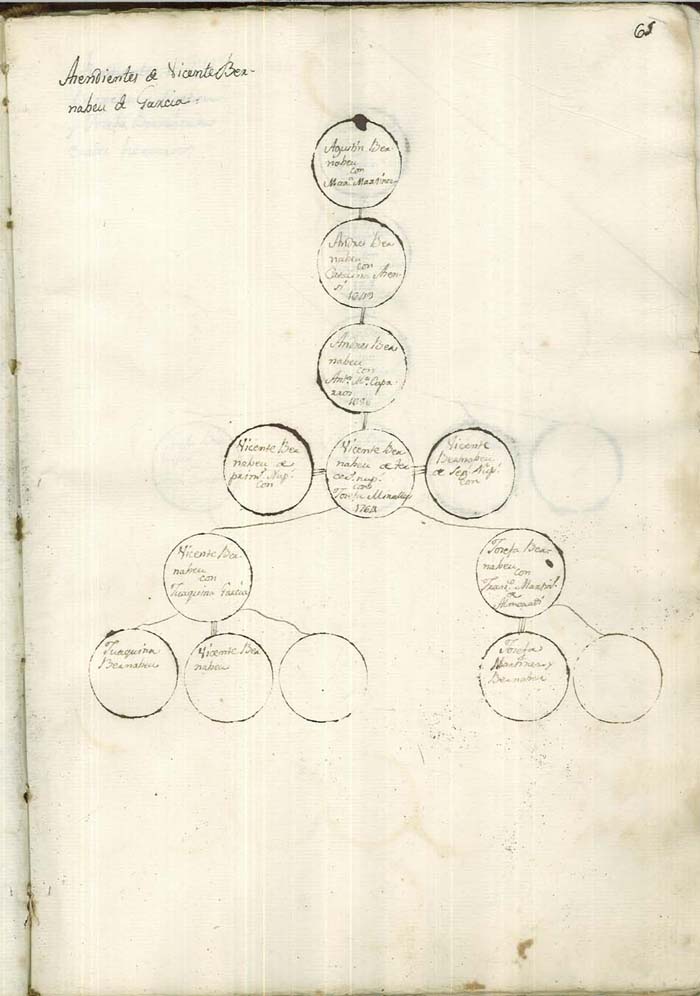 65
Asendientes de Vicente Ber-
nabeu de Garcia.
Agustin Ber
nabeu
con
Martinez
Andres Ber
nabeu
con
Andres Ber
nabeu
con
Vicente Ber
nabeu de
prim.s Nup.s
con
Vicente Ber
nabeu de ter
cer.s nup.s
con
Josefa Miralles
Vicente
Bernabeu
de Seg.s Nup.s
con
Vicente Ber
nabeu
con
Juaquina Garcia
Josefa Ber
nabeu
con
de
Juaquina
Bernabeu
Vicente Ber
nabeu
Josefa
Martinez y
Bernabeu